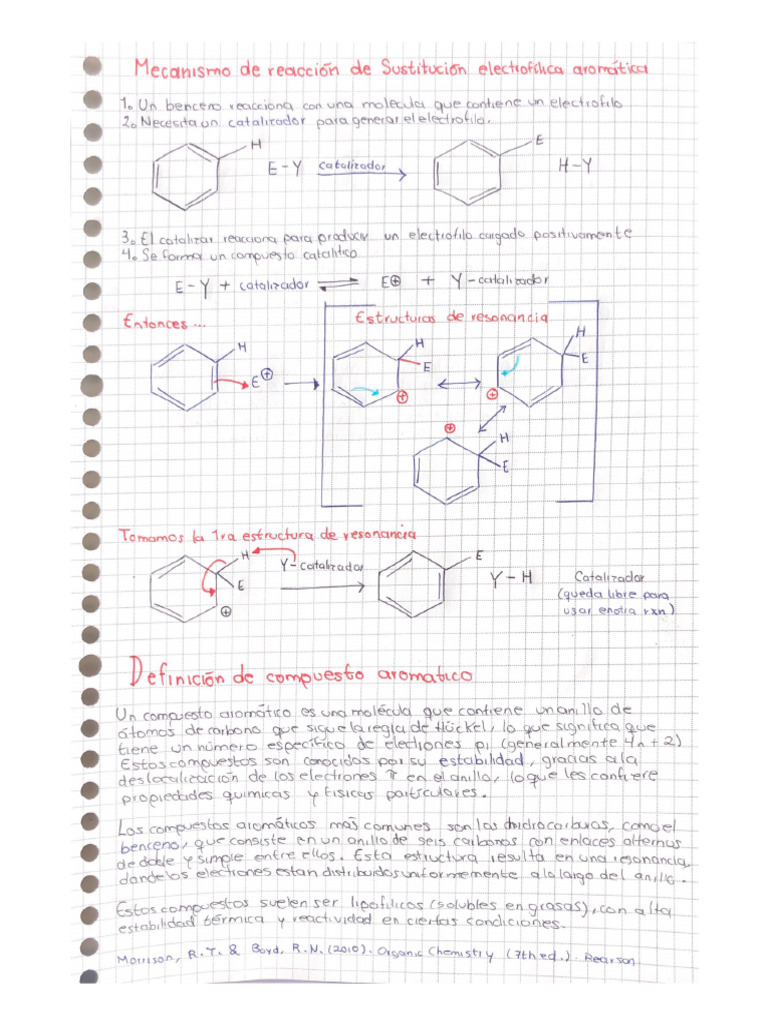 Mecanismo de reacción de Sustitución electrofílica aromática
1. Un benceno reacciona con una molécula que contiene un electrofilo
2. Necesita un catalizador para generar el electrofilo.
H E-Y catalizador E H-Y
3. El catalizar reacciona para producir un electrofilo cargado positivamente
4. Se forma un compuesto catalítico
E-Y + catalizador ⇌ E⊕ + Y-catalizador
Entonces ... Estructuras de resonancia
H E⊕ H E ⊕ H E ⊕
⊕ H E
Tomamos la 1ra estructura de resonancia
H E ⊕ Y-catalizador E Y-H Catalizador
(queda libre para
usar en otra rxn)
Definición de compuesto aromático
Un compuesto aromático es una molécula que contiene un anillo de
átomos de carbono que sigue la regla de Hückel, lo que significa que
tiene un número específico de electrones pi (generalmente 4n+2)
Estos compuestos son conocidos por su estabilidad, gracias a la
deslocalización de los electrones π en el anillo, lo que les confiere
propiedades químicas y físicas particulares.
Los compuestos aromáticos más comunes son los hidrocarburos, como el
benceno, que consiste en un anillo de seis carbonos con enlaces alternos
de doble y simple entre ellos. Esta estructura resulta en una resonancia,
donde los electrones estan distribuidos uniformemente a lo largo del anillo.
Estos compuestos suelen ser lipofílicos (solubles en grasas), con alta
estabilidad térmica y reactividad en ciertas condiciones.
Morrison, R.T. & Boyd, R.N. (2010). Organic Chemistry (7th ed.). Pearson